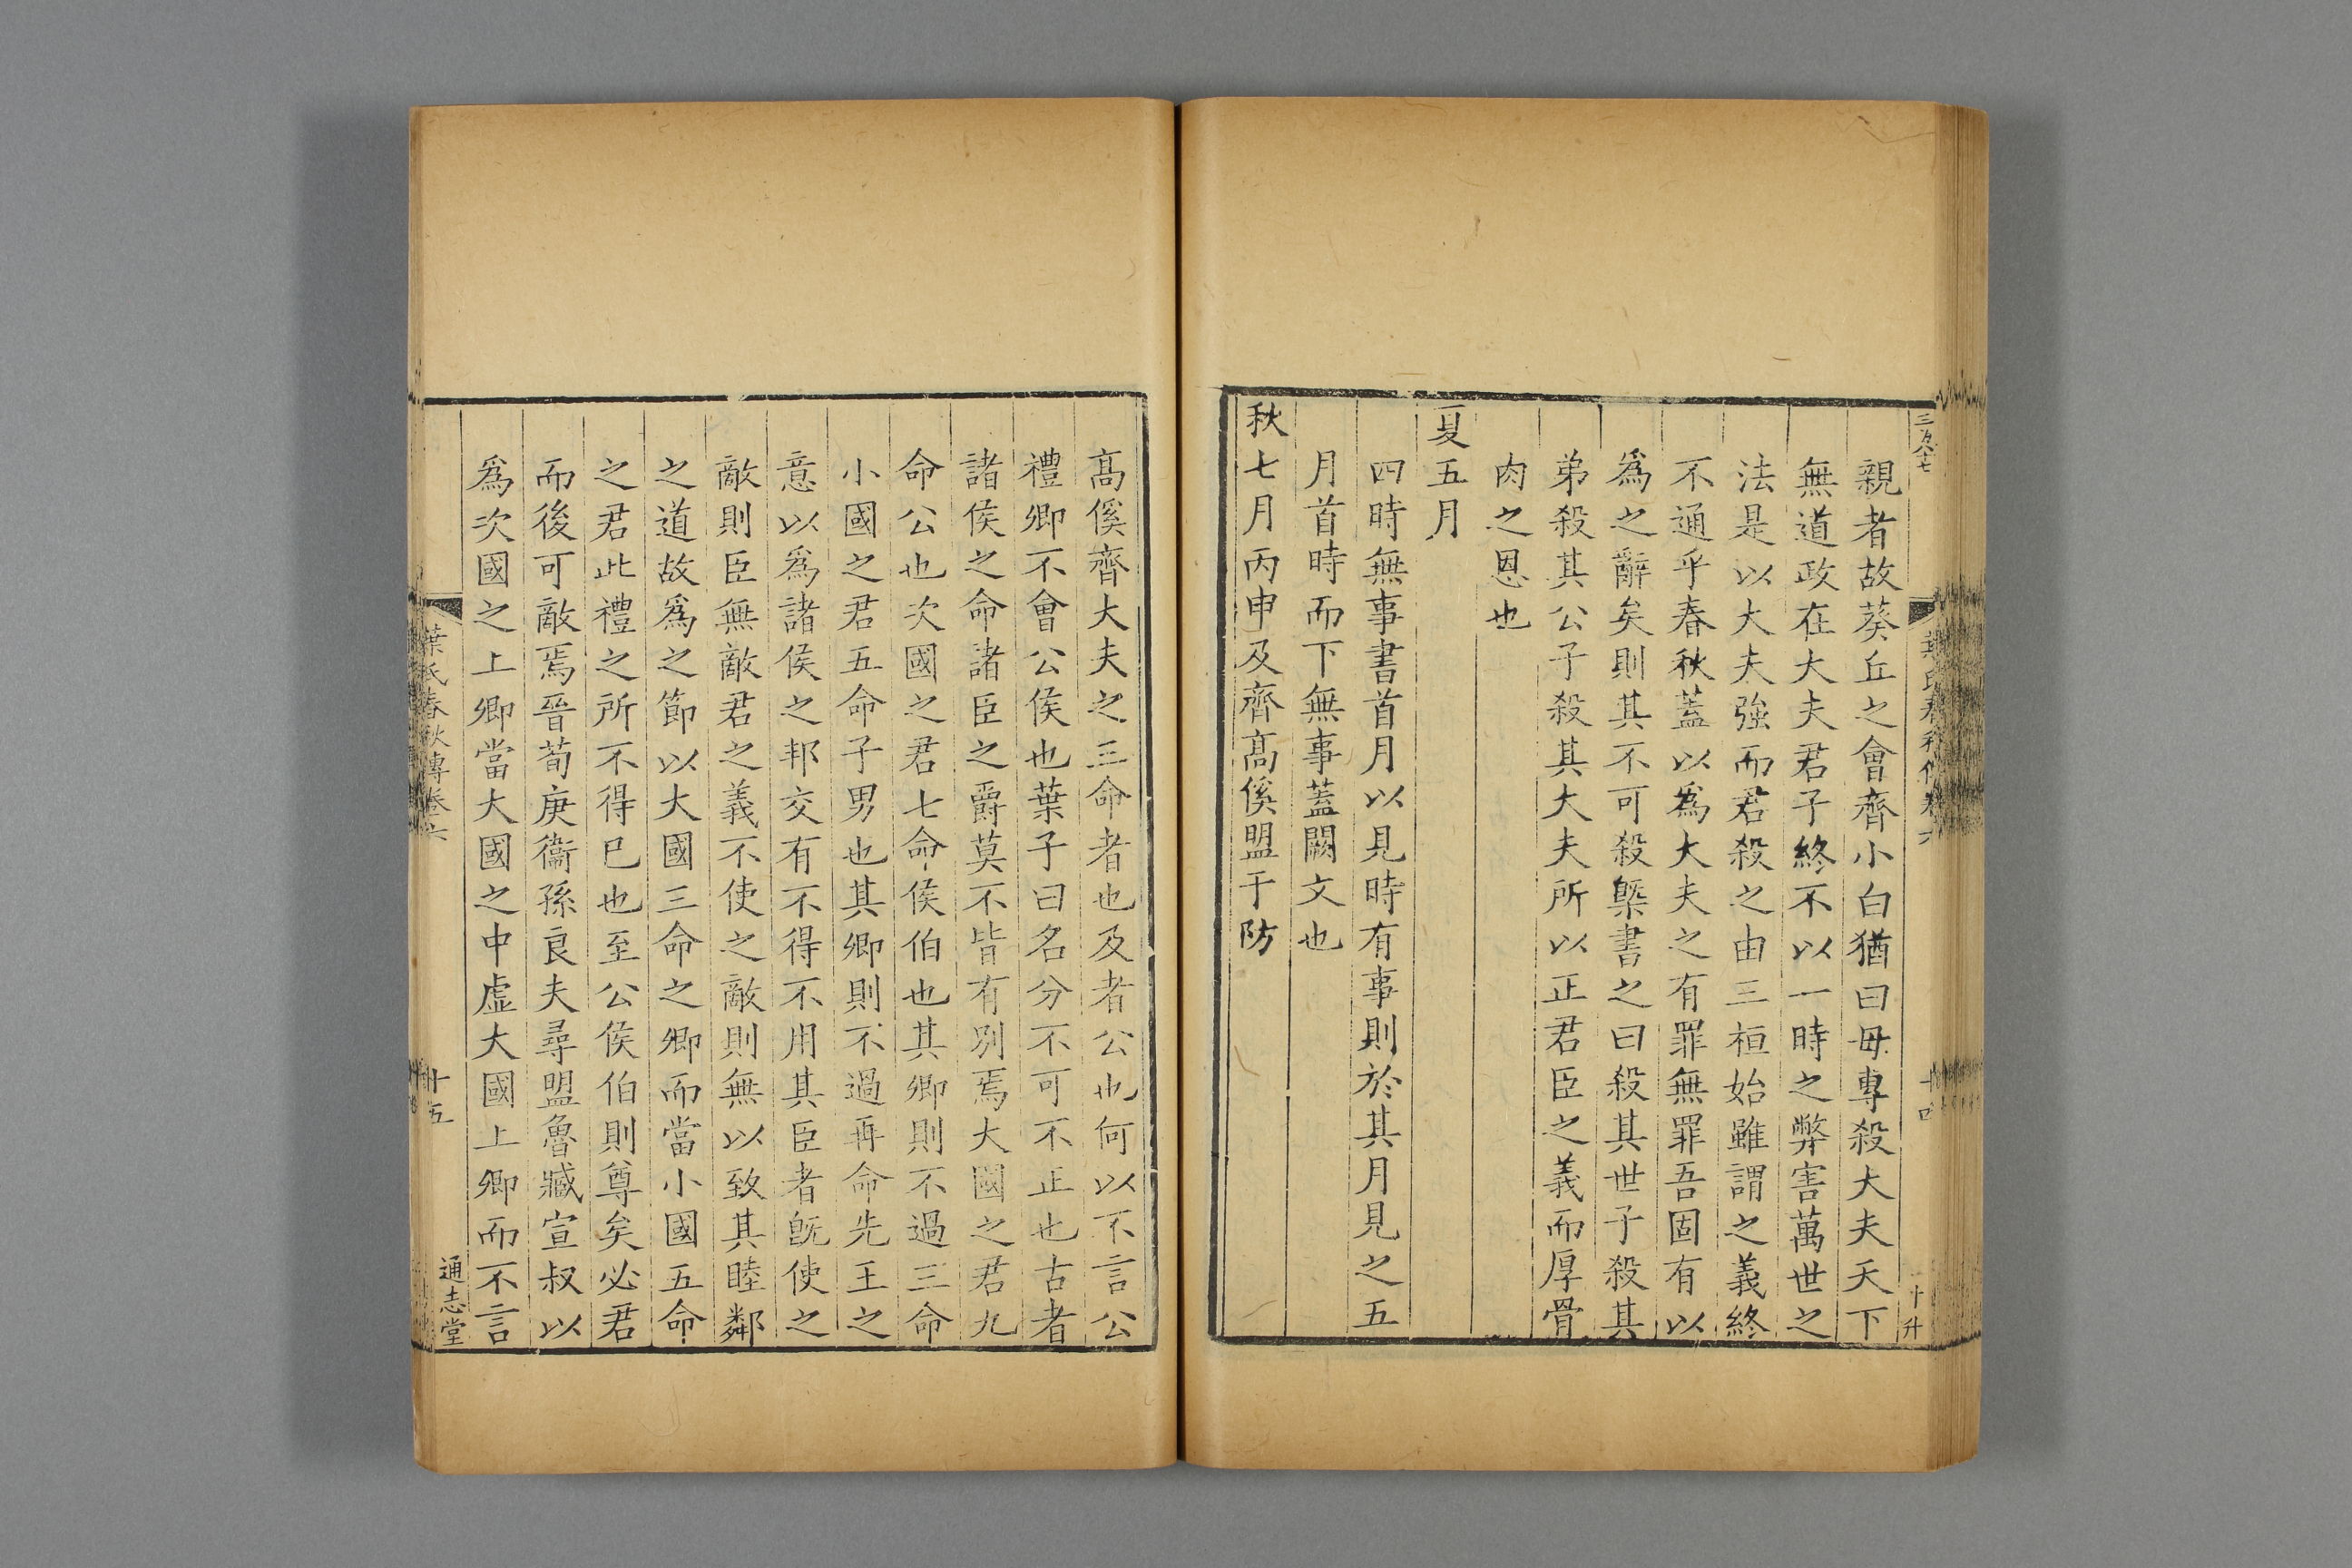 親者故葵丘之會齊小白猶曰毋專殺大夫天下
無道政在大夫君子終不以一時之弊害萬世之
法是以大夫強而君殺之由三桓始雖謂之義終
不通乎春秋蓋以爲大夫之有罪無罪吾固有以
爲之辭矣則其不可殺槩書之曰殺其世子殺其
弟殺其公子殺其大夫所以正君臣之義而厚骨
肉之恩也
夏五月
四時無事書首月以見時有事則於其月見之五
月首時而下無事蓋闕文也
秋七月丙申及齊髙傒盟于防
髙傒齊大夫之三命者也及者公也何以不言公
禮卿不會公侯也葉子曰名分不可不正也古者
諸侯之命諸臣之爵莫不皆有別焉大國之君九
命公也次國之君七命侯伯也其卿則不過三命
小國之君五命子男也其卿則不過再命先王之
意以爲諸侯之邦交有不得不用其臣者旣使之
敵則臣無敵君之義不使之敵則無以致其睦鄰
之道故爲之節以大國三命之卿而當小國五命
之君此禮之所不得已也至公侯伯則尊矣必君
而後可敵焉晉荀庚衞孫良夫尋盟魯臧宣叔以
爲次國之上卿當大國之中虛大國上卿而不言
葉氏春秋傳卷六
十五
通志堂